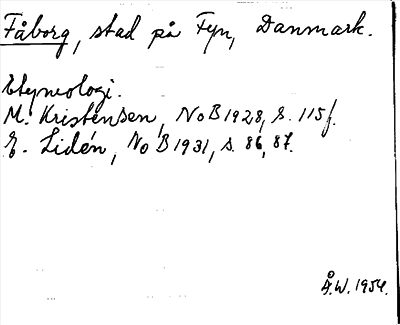 Fåborg, stad på Fyn, Danmark.
Etymologi.
M. Kristensen, NoB 1928, s. 115 f.
E. Lidén, NoB 1931, s. 86, 87.
Å.W. 1954.